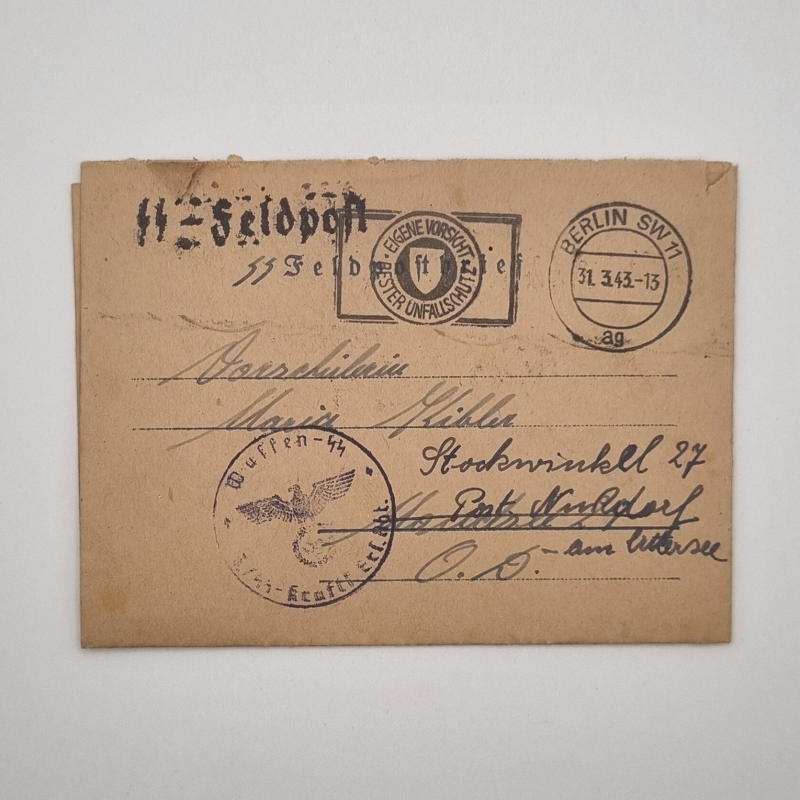 SS-Feldpost
SS Feldpostbrief
EIGENE VORSICHT
BESTER UNFALLSCHUTZ
BERLIN SW 11
31.3.43.-13
ag
Maria Kibler
Stockwinkel 27
Post Nußdorf
am Attersee
O. D.
Waffen-SS
SS-Kraftf. Ers. Abt.